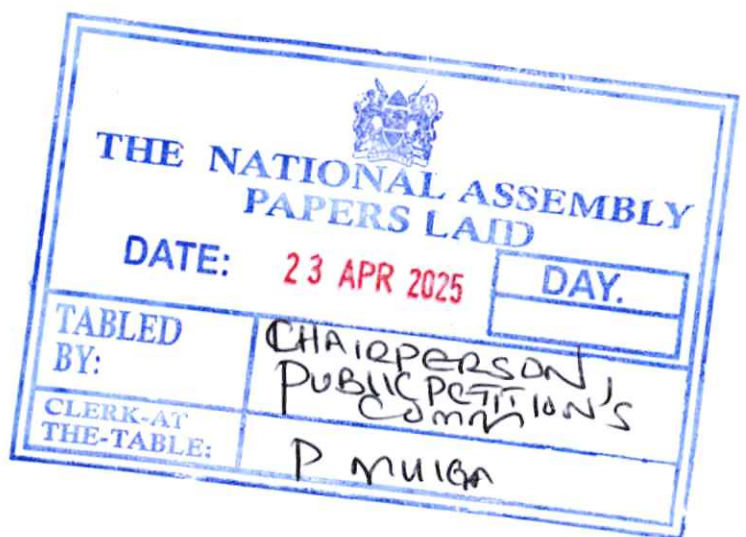 THE NATIONAL ASSEMBLY
PAPERS LAID
DATE: 23 APR 2025 DAY.
TABLED
BY:
CHAIRPERSON,
PUBLIC PETITION'S
COMM
CLERK-AT
THE-TABLE:
P MUIGA